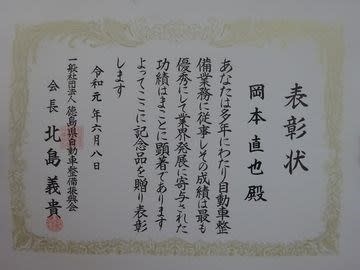 表彰状
岡本直也殿
あなたは多年にわたり自動車整
備業務に従事しその成績は最も
優秀にして業界発展に寄与された
功績はまことに顕著であります
よってここに記念品を贈り表彰
します
令和元年六月八日
一般社団法人徳島県自動車整備振興会
会長北島義貴